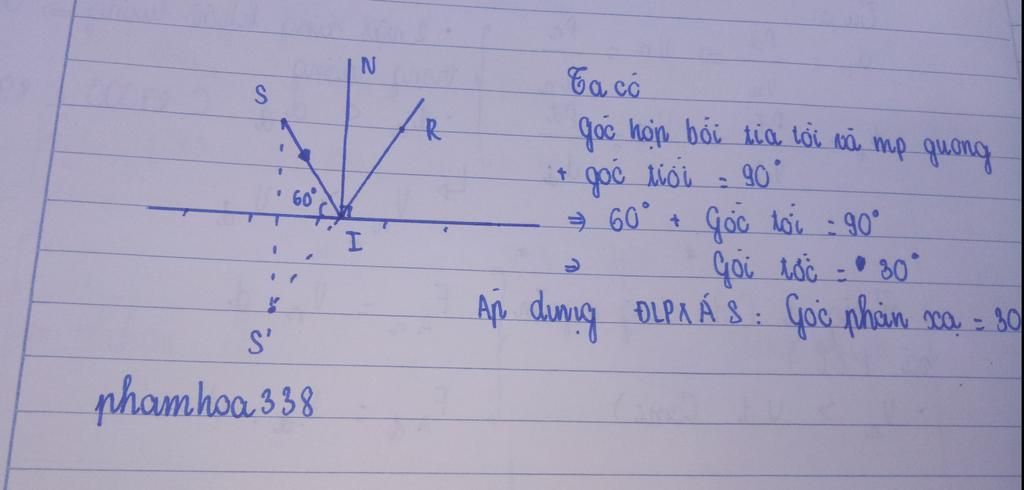 N
S
R
60°
I
S'
Ta có
góc hợp bởi tia tới và mp gương
+ góc tới = 90°
⇒ 60° + Góc tới = 90°
⇒ Gói tớc = 30°
Áp dụng ĐLPXÁS: Góc phản xạ = 30
phamhoa338